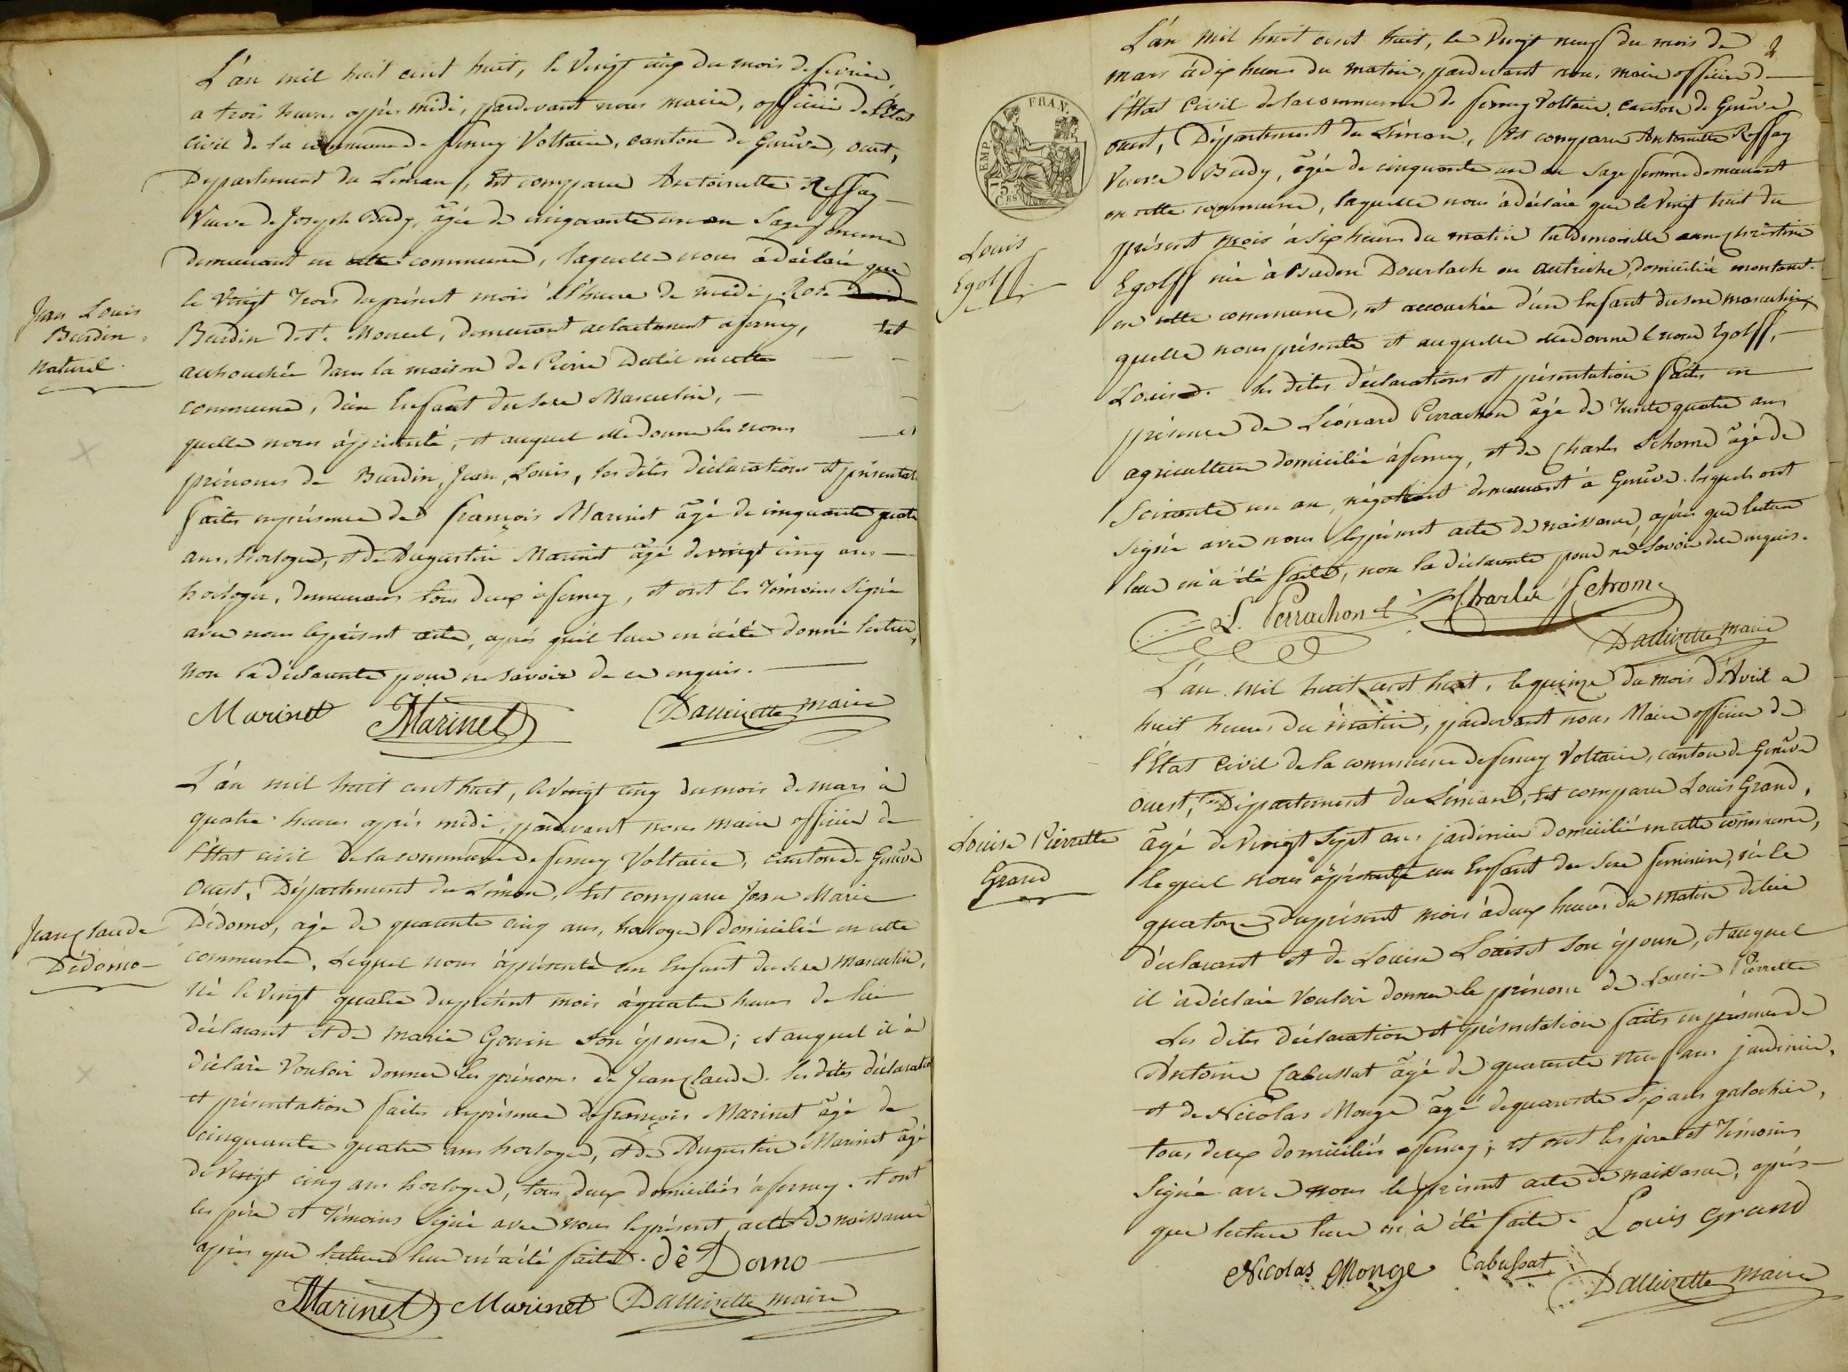 L'an mil huit cent huit, le vingt cinq du mois de fevrier
a trois heures après midi, pardevant nous maire, officier de l'Etat
civil de la commune de ferney Voltaire, canton de Genêve, ouest,
Departement du Léman, Est comparue Antoinette Reffay
Veuve de Joseph Budy, âgée de cinquante un an Sage femme
demeurant en cette commune, laquelle nous à déclaré que
le vingt trois du présent mois à l'heure de midi, Rose
Jean Louis
Burdin,
naturel.
Burdin de St. Morcel, demeurant actuelement a ferney, est
acchouchée dans la maison de Pierre en cette
commune, d'un Enfant du sexe Masculin,
quelle nous à présenté, et auquel elle donne les noms et
prénoms de Burdin, Jean, Louis, les dites déclarations et présentat.
faites en présence de françois Marinet âgé de cinquante quatre
ans, horloger, et de Augustin Marinet âgé de vingt cinq ans
horloger, demeurans tous deux à ferney, et ont les Témoins Signé
avec nous le présent acte, après qu'il leur en à été donné lecture,
non la déclarante pour ne savoir de ce enquis.
Marinet Marinet Dallizette maire
L'an mil huit cent huit, le vingt cinq du mois de mars à
quatre heures après midi, pardevant nous maire officier de
l'Etat civil de la commune de ferney Voltaire, canton de Genêve
Ouest, Département du Léman, Est comparu Jean Marie
Jean Claude
Dédomo
Dédomo, âgé de quarante cinq ans, horloger domicilié en cette
commune, Lequel nous à présenté un Enfant du sexe masculin,
né le vingt quatre du présent mois à quatre heures de lui
déclarant et de marie Gonin son épouse; et auquel il à
déclaré vouloir donner les prénoms de Jean Claude. les dites déclaration
et présentation faites en présence de françois Marinet âgé de
cinquante quatre ans horloger, et de Augustin Marinet âgé
de vingt cinq ans horloger, tous deux domiciliés à ferney. et ont
les père et Témoins Signé avec nous le présent acte de naissance
après que lecture leur en à été faite. dê Domo
Marinet Marinet Dallizette maire
2
L'an mil huit cent huit, le vingt neuf du mois de
mars à dix heures du matin, pardevant nous maire officier de
l'Etat Civil de la commune de ferney Voltaire, canton de Genêve
ouest, Département du Léman, Est comparue Antoinette Reffay
TIMP. FRAN.
75
CES
Veuve Budy, âgée de cinquante un an Sage femme demeurant
en cette commune, laquelle nous à déclaré que le vingt huit du
présent mois à six heures du matin la Demoiselle anne christine
Louis
Egolff.
Egolff née à Baden Dourlach en autriche, domiciliée montant.
en cette commune, est accouchée d'un Enfant du sexe masculin
quelle nous présente et auquelle elle donne le nom Egolff,
Louis. les dites déclarations et présentation faites en
présence de Léonard Perrachon âgé de Trente quatre ans
agriculteur domicilié à ferney, et de Charles Schome âgé de
Soixante un an, négociant demeurant à Genêve. lesquels ont
Signé avec nous le présent acte de naissance, après que lecture
leur en à été faite, non la déclarante pour ne savoir de enquis.
L. Perrachon Charles Schome
Dallizette maire
L'an mil huit cent huit, le quinze du mois d'Avril a
huit heures du matin, pardevant nous Maire officier de
l'Etat Civil de la commune de ferney Voltaire, canton de Genêve
ouest, Département du Léman, Est comparu Louis Grand,
Louise Pierrette
Grand
âgé de vingt Sept ans jardinier domicilié en cette commune,
lequel nous à présenté un Enfant du sexe feminin, née le
quatorze du présent mois à deux heures du matin de lui
déclarant et de Louise Loaiset son épouse, et auquel
il à déclaré vouloir donner le prénom de Louise Pierrette
Les dites déclaration et présentation faites en présence de
Antoine Cabussat âgé de quarante neuf ans jardinier,
et de Nicolas Monge âgé de quarante Six ans galochier,
tous deux domiciliés a ferney; et ont les père et Témoins
Signé avec nous le présent acte de naissance, après
que lecture leur en à été faite. Louis Grand
Nicolas Monge Cabussat Dallizette maire